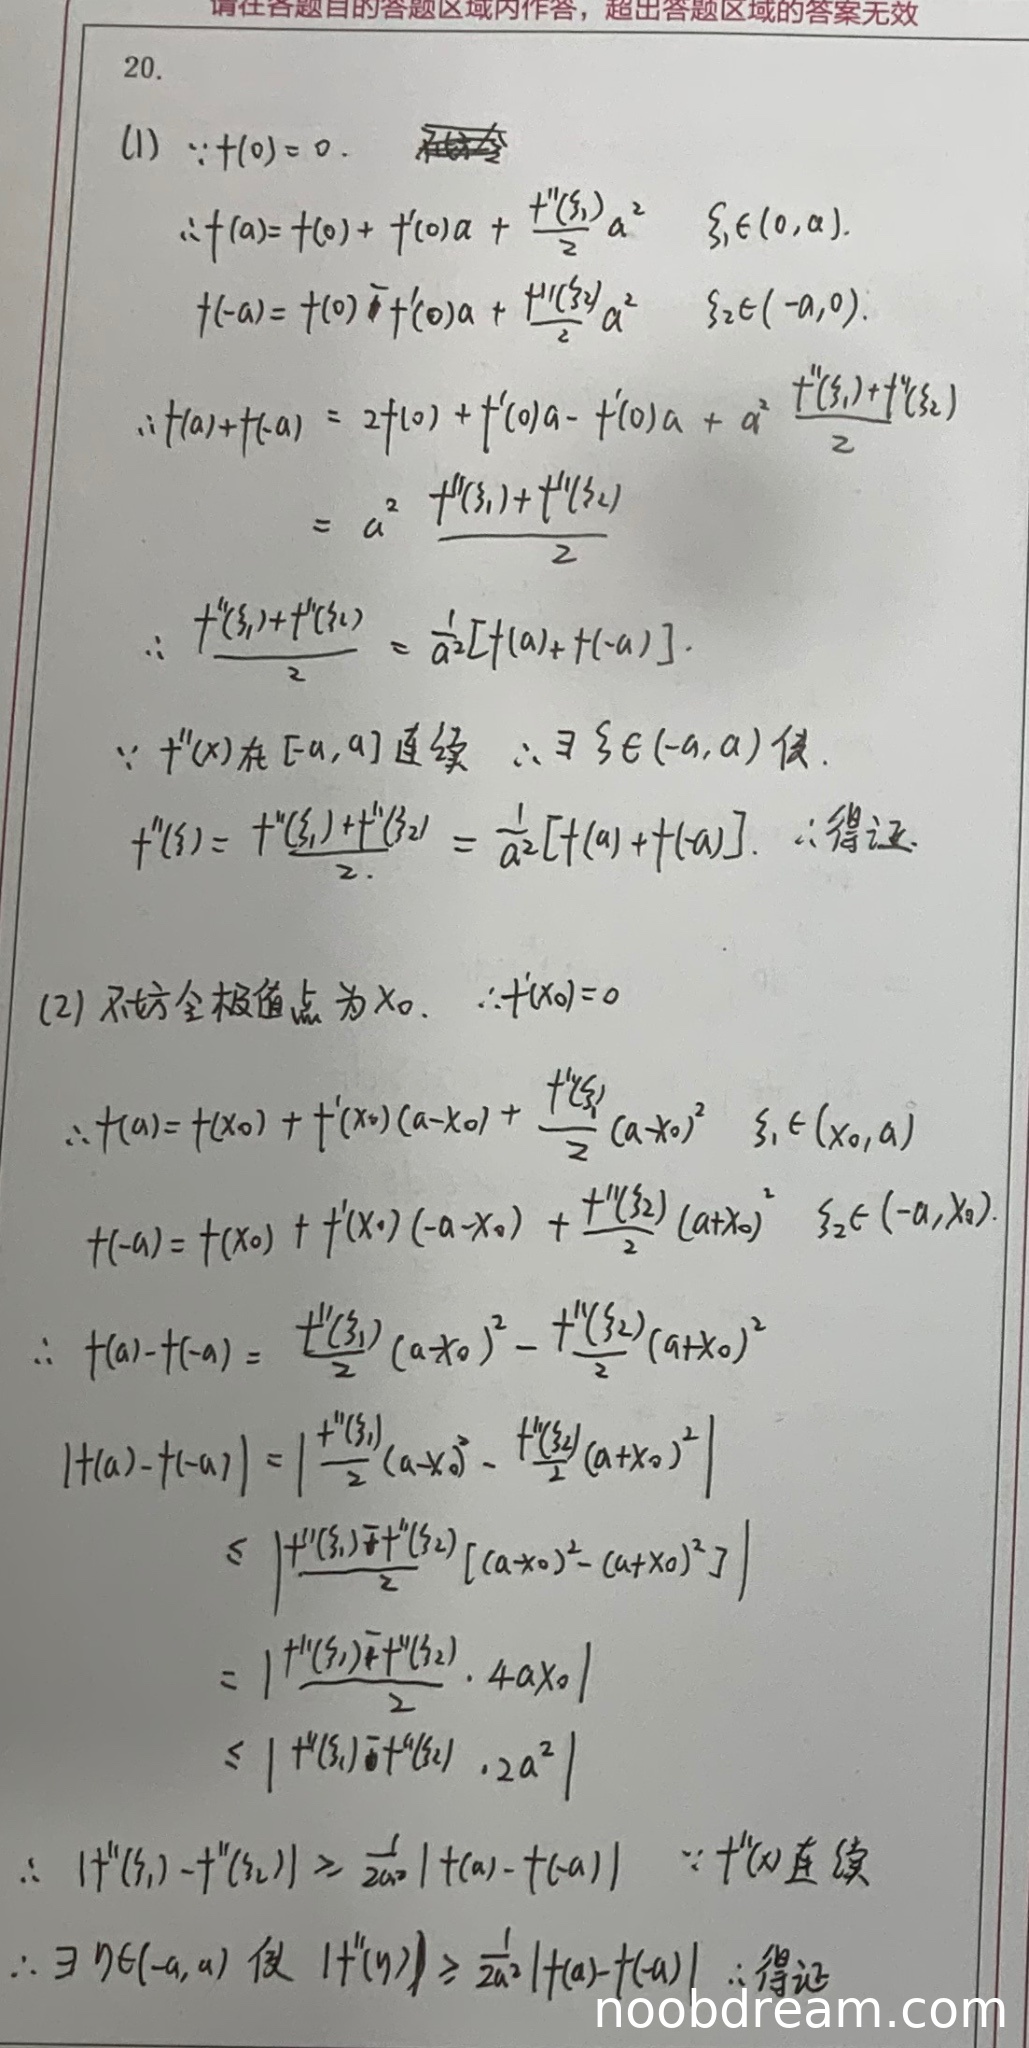 请在各题目的答题区域内作答，超出答题区域的答案无效
20.
(1) ∵f(0)=0.
∴f(a)=f(0)+f'(0)a+\frac{f''(ξ₁)}{2}a² ξ₁∈(0,a).
f(-a)=f(0)-f'(0)a+\frac{f''(ξ₂)}{2}a² ξ₂∈(-a,0).
∴f(a)+f(-a)=2f(0)+f'(0)a-f'(0)a+a²\frac{f''(ξ₁)+f''(ξ₂)}{2}
=a²\frac{f''(ξ₁)+f''(ξ₂)}{2}
∴\frac{f''(ξ₁)+f''(ξ₂)}{2}=\frac{1}{a²}[f(a)+f(-a)].
∵f''(x)在[-a,a]连续 ∴∃ξ∈(-a,a)使.
f''(ξ)=\frac{f''(ξ₁)+f''(ξ₂)}{2}.=\frac{1}{a²}[f(a)+f(-a)]. ∴得证.
(2)不妨全极值点为x₀. ∴f'(x₀)=0
∴f(a)=f(x₀)+f'(x₀)(a-x₀)+\frac{f''(ξ₁)}{2}(a-x₀)² ξ₁∈(x₀,a)
f(-a)=f(x₀)+f'(x₀)(-a-x₀)+\frac{f''(ξ₂)}{2}(a+x₀)² ξ₂∈(-a,x₀).
∴f(a)-f(-a)=\frac{f''(ξ₁)}{2}(a-x₀)²-\frac{f''(ξ₂)}{2}(a+x₀)²
|f(a)-f(-a)|=|\frac{f''(ξ₁)}{2}(a-x₀)²-\frac{f''(ξ₂)}{2}(a+x₀)²|
≤|\frac{f''(ξ₁)-f''(ξ₂)}{2}[(a-x₀)²-(a+x₀)²]|
=|\frac{f''(ξ₁)-f''(ξ₂)}{2}·4ax₀|
≤|f''(ξ₁)-f''(ξ₂)·2a²|
∴|f''(ξ₁)-f''(ξ₂)|≥\frac{1}{2a²}|f(a)-f(-a)| ∵f''(x)连续
∴∃η∈(-a,a)使|f''(η)|≥\frac{1}{2a²}|f(a)-f(-a)| ∴得证
noobdream.com